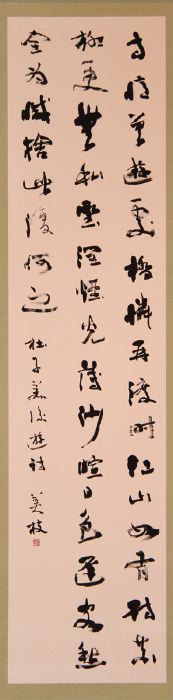 寺憶曾遊處橋憐再渡時江山如有待花
柳更無私野潤煙光薄沙暄日色遲客愁
全為減捨此復何之 杜子美後遊詩 美枝